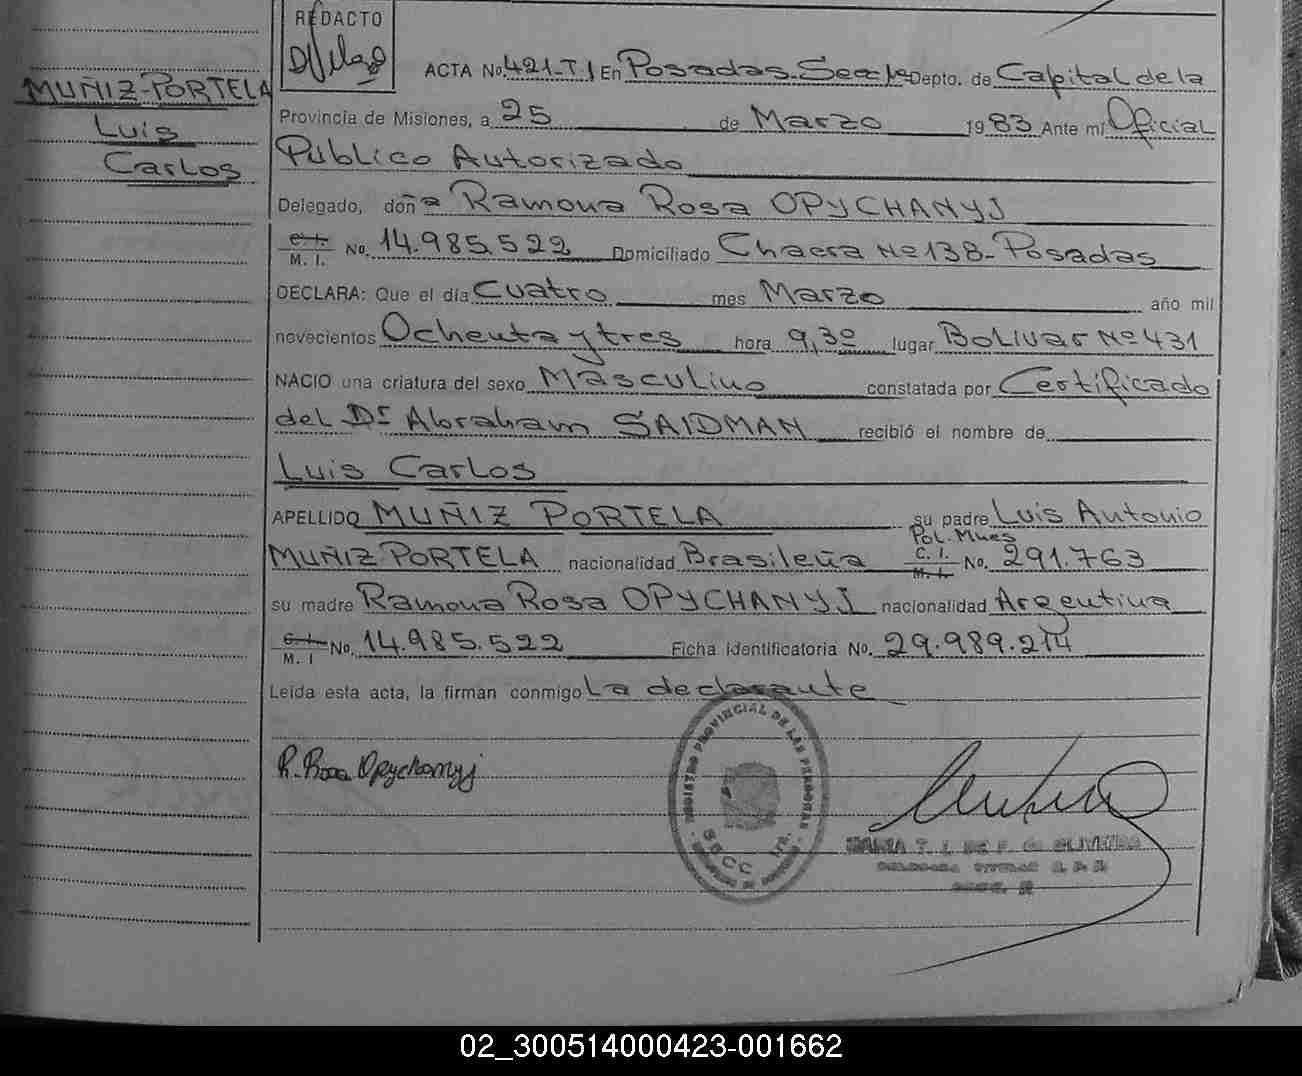 REDACTO
MUÑIZ-PORTELA
Luis
Carlos
ACTA No. 421-T.I En Posadas-Secc 1ra Depto. de Capital de la
Provincia de Misiones, a 25 de Marzo 1983 Ante mí Oficial
Público Autorizado
Delegado, doña Ramona Rosa OPYCHANYJ
C. I. M. I. No. 14.985.522 Domiciliado Chacra Nº 138- Posadas
DECLARA: Que el día Cuatro mes Marzo año mil
novecientos Ochenta y tres hora 9,30 lugar Bolivar Nº 431
NACIO una criatura del sexo Masculino constatada por Certificado
del Dr Abraham SAIDMAN recibió el nombre de
Luis Carlos
APELLIDO MUÑIZ PORTELA su padre Luis Antonio
MUÑIZ PORTELA nacionalidad Brasileña Pol. Mnes C. I. M. I. No. 291.763
su madre Ramona Rosa OPYCHANYJ nacionalidad Argentina
C. I. M. I No. 14.985.522 Ficha Identificatoria No. 29.989.214
Leída esta acta, la firman conmigo La declarante
R. Rosa Opychanyj
REGISTRO PROVINCIAL DE LAS PERSONAS
SECC 1ra.
02_300514000423-001662